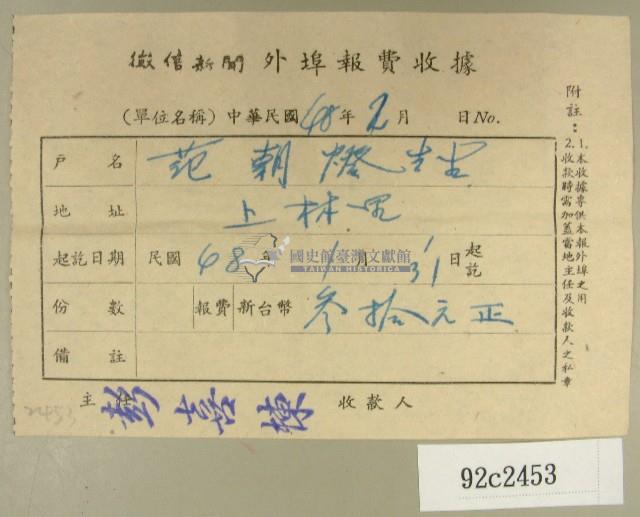 徵信新聞 外埠報費收據
(單位名稱) 中華民國 48 年 2 月 日 No.
戶名 范朝燈 先生
地址 上林里
起訖日期 民國 48 年 1 月 31 日 起訖
份數 報費 新台幣 參拾元正
備註
主任 彭喜棟 收款人
附註：
1.本收據專供本報外埠之用
2.收款時需加蓋當地主任及收款人之私章
國史館臺灣文獻館
TAIWAN HISTORICA
2453
92c2453